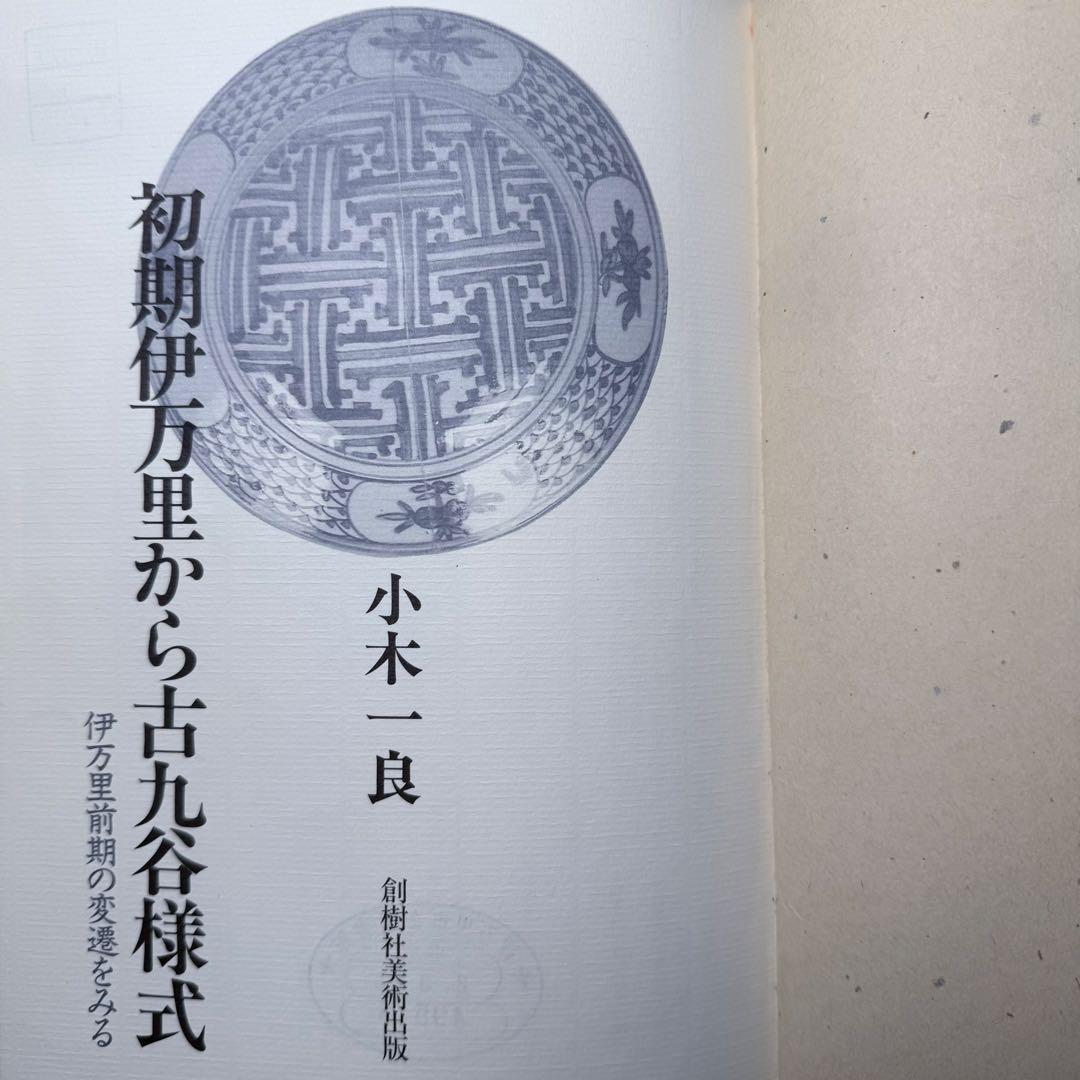 初期伊万里から古九谷様式
伊万里前期の変遷をみる
小木一良
創樹社美術出版